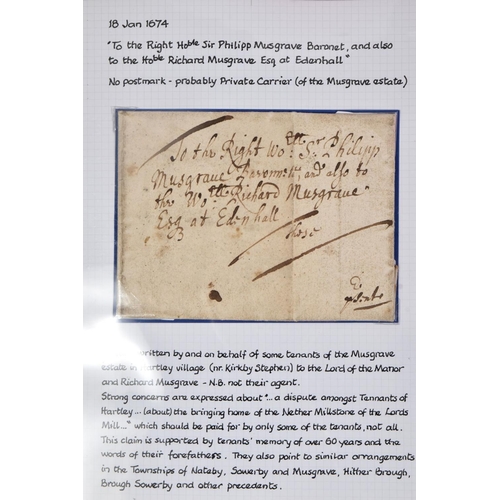 18 Jan 1674
"To the Right Hoble Sir Philipp Musgrave Baronet, and also
to the Hoble Richard Musgrave Esq at Edenhall"
No postmark - probably Private Carrier (of the Musgrave estate)
To the Right Wo:ll Sr Philipp
Musgrave and also to
the Wo:ll Richard Musgrave
Esq at Edenhall
these
written by and on behalf of some tenants of the Musgrave
estate in Hartley village (nr. Kirkby Stephen) to the Lord of the Manor
and Richard Musgrave - N.B. not their agent.
Strong concerns are expressed about "... a dispute amongst Tennants of
Hartley ... (about) the bringing home of the Nether Millstone of the Lords
Mill..." which should be paid for by only some of the tenants, not all.
This claim is supported by tenants' memory of over 60 years and the
words of their forefathers. They also point to similar arrangements
in the Townships of Nateby, Sowerby and Musgrave, Hither Brough,
Brough Sowerby and other precedents.